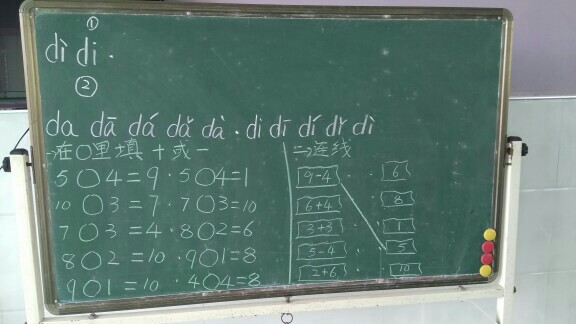 ①
dì di.
②
da dā dá dǎ dà. di dī dí dǐ dì
一在○里填+或-
5○4=9. 5○4=1
10○3=7. 7○3=10
7○3=4. 8○2=6
8○2=10. 9○1=8
9○1=10. 4○4=8
二连线
9-4 . . 6
6+4 . . 8
3+3 . . 1
5-4 . . 5
2+6 . . 10